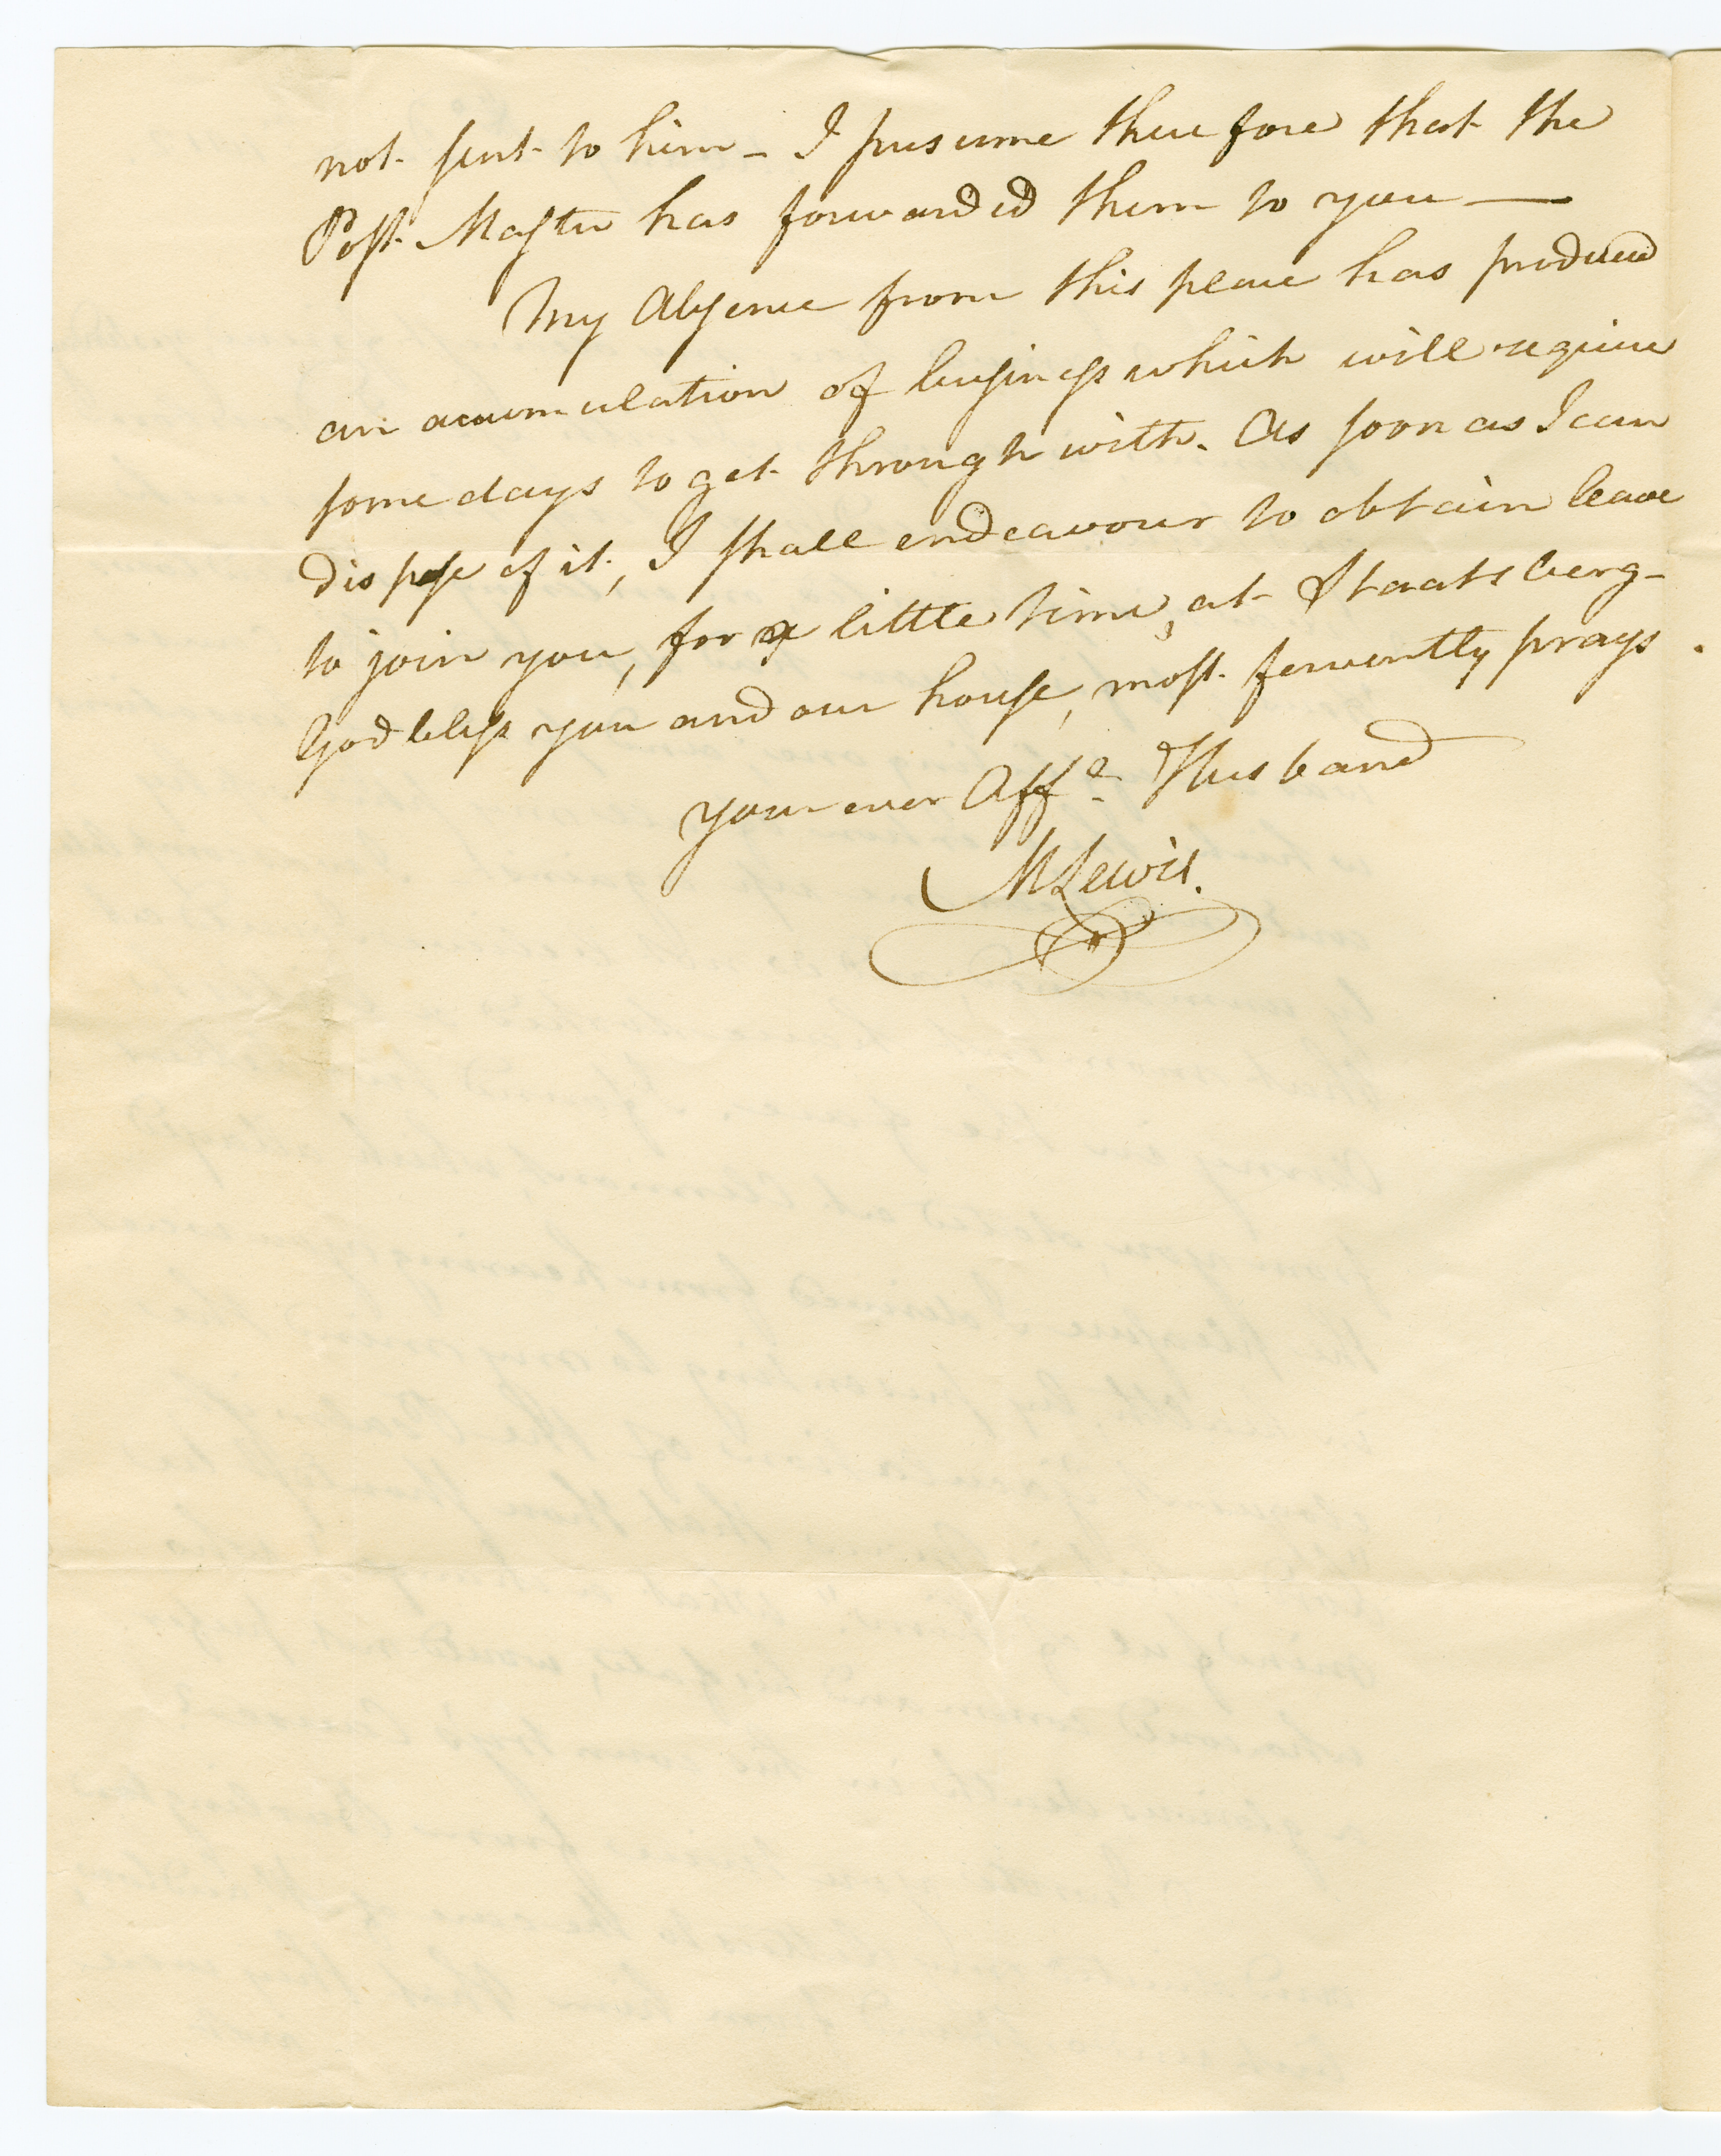 not sent to him – I presume therefore that the
Post Master has forwarded them to you —
My Absence from this place has produced
an accumulation of business which will require
some days to get through with. As soon as I can
dispose of it, I shall endeavour to obtain leave
to join you, for a little time, at Staatsberg –
God bless you and our house, most fervently prays .
your ever Affe. Husband
M Lewis.